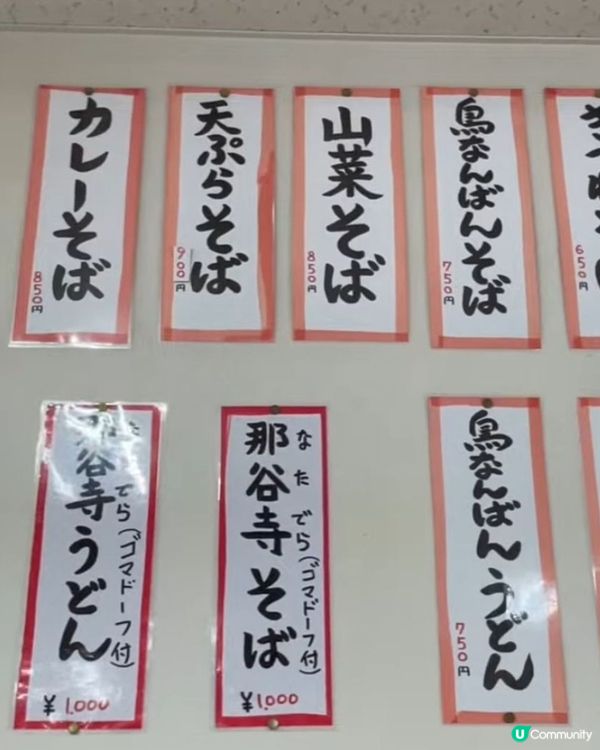 カレーそば
850円
天ぷらそば
900円
山菜そば
850円
鳥なんばんそば
750円
650円
那谷寺うどん
でら(ゴマドーフ付)
¥1,000
那谷寺そば
なたでら(ゴマドーフ付)
¥1,000
鳥なんばんうどん
750円
U Community